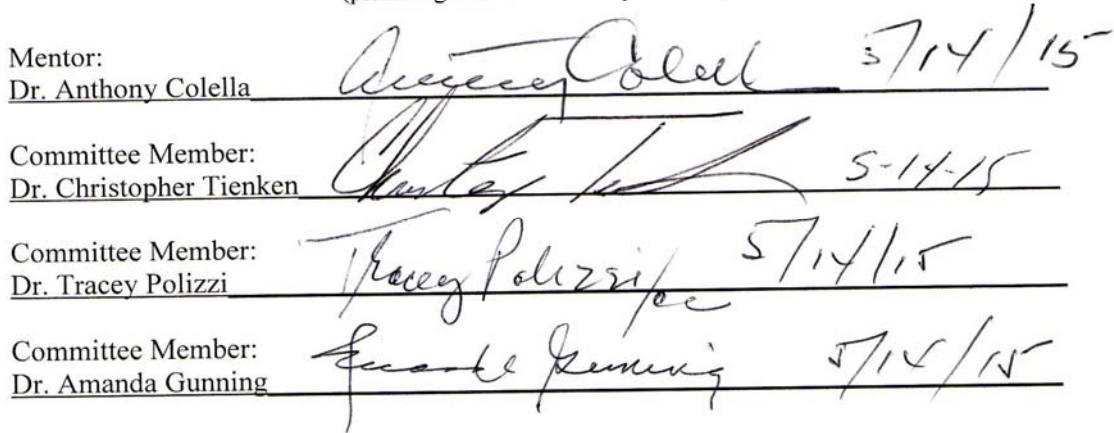 Mentor:
Dr. Anthony Colella Anthony Colella 5/14/15
Committee Member:
Dr. Christopher Tienken 5-14-15
Committee Member:
Dr. Tracey Polizzi Tracey Polizzi/ac 5/14/15
Committee Member:
Dr. Amanda Gunning Amanda Gunning 5/14/15